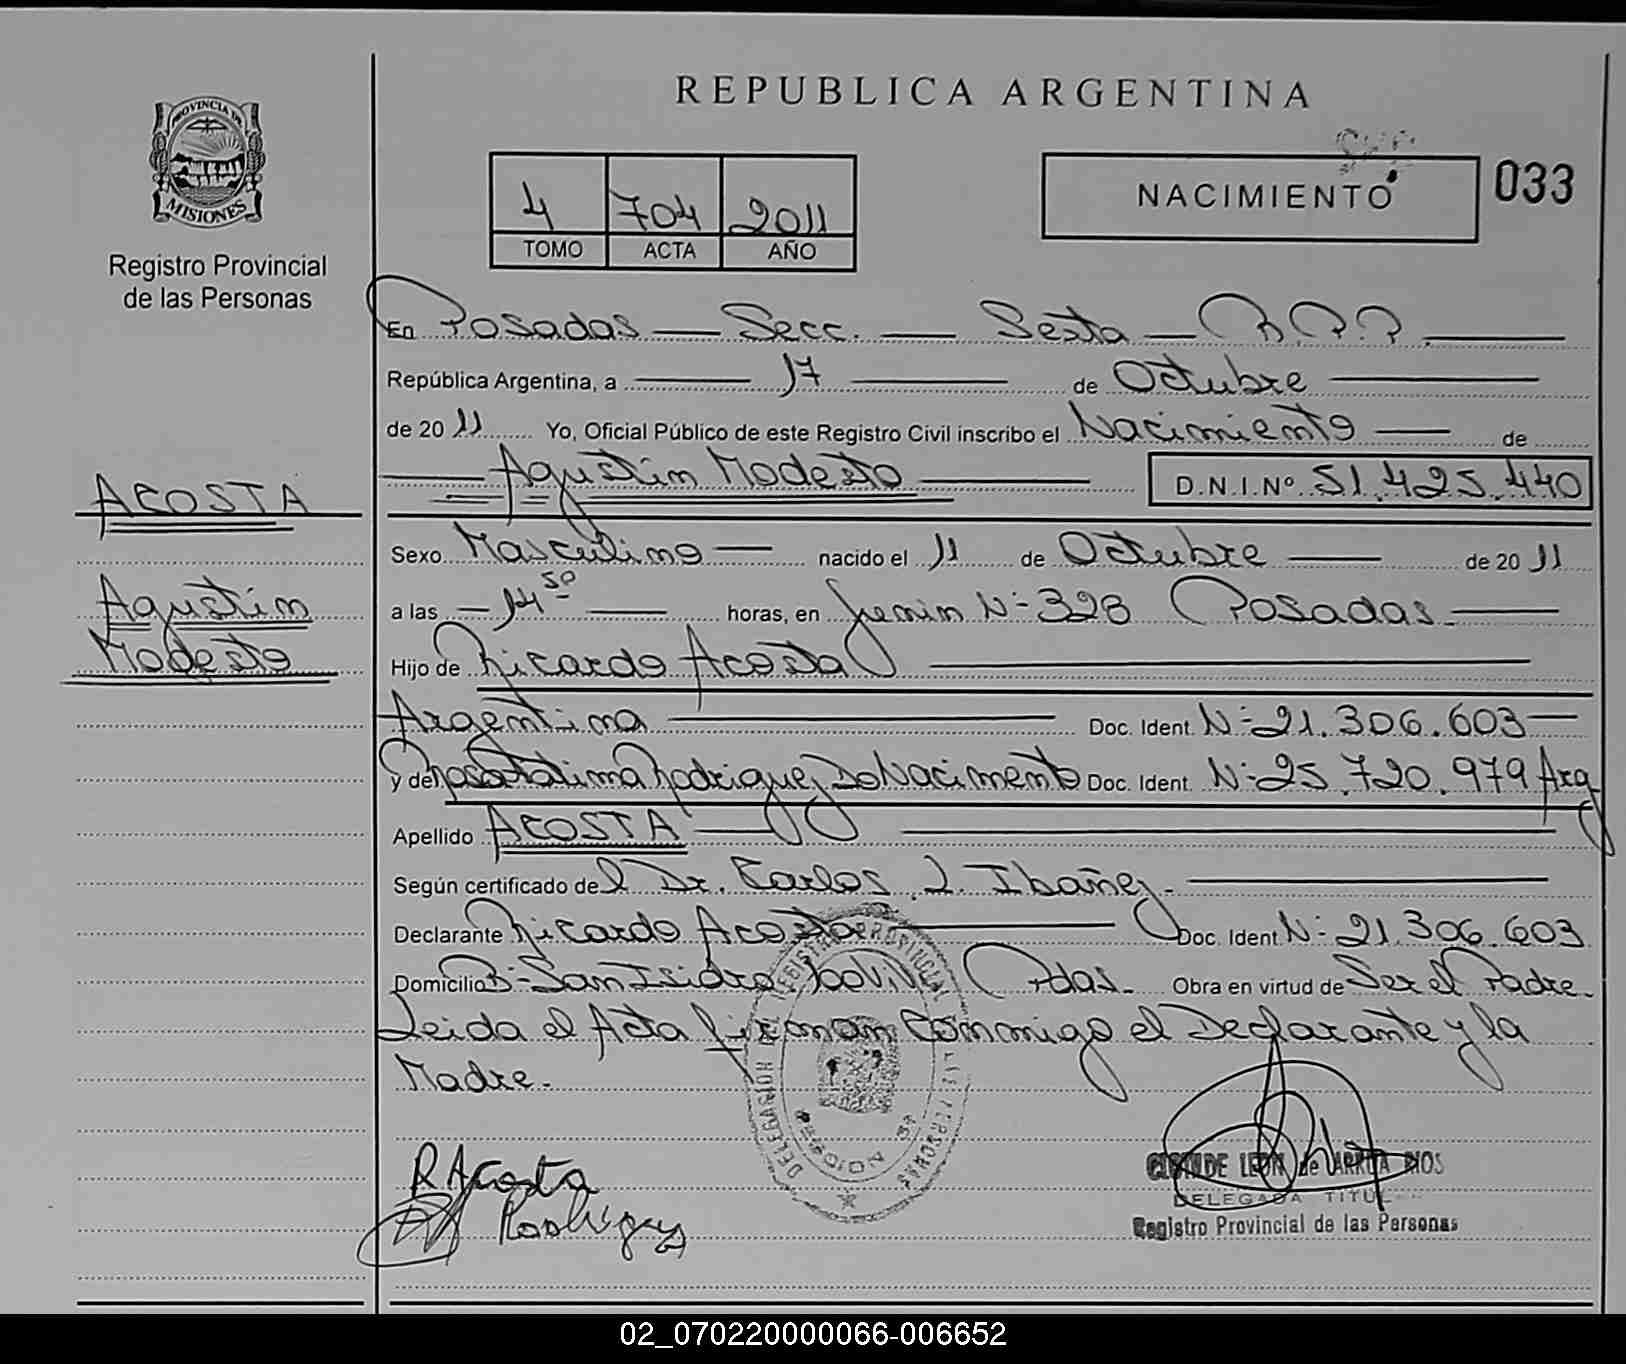 REPUBLICA ARGENTINA
PROVINCIA DE
MISIONES
Registro Provincial
de las Personas
4 704 2011
TOMO ACTA AÑO
NACIMIENTO
033
En Posadas — Secc. — Sexta — R.P.P.
República Argentina, a — 17 — de Octubre —
de 20 11 Yo, Oficial Público de este Registro Civil inscribo el Nacimiento — de
— Agustin Modesto — D.N.I.Nº 51.425.440
ACOSTA
Agustin
Modesto
Sexo Masculino — nacido el 11 de Octubre — de 20 11
a las — 14 50 — horas, en Junin Nº 328 Posadas —
Hijo de Ricardo Acosta —
Argentina — Doc. Ident. Nº 21.306.603 —
y de Rosa Fatima Rodriguez Do Nacimento Doc. Ident. Nº 25.720.979 Arg
Apellido ACOSTA —
Según certificado del Dr. Carlos J. Ibañez. —
Declarante Ricardo Acosta — Doc. Ident. Nº 21.306.603
Domicilio Bº San Isidro Pdas. Obra en virtud de Ser el Padre.
Leida el Acta firman conmigo el Declarante y la
Madre.
R Acosta
Rodriguez
LEON de ARRUA RIOS
DELEGADA TITUL
Registro Provincial de las Personas
02_070220000066-006652